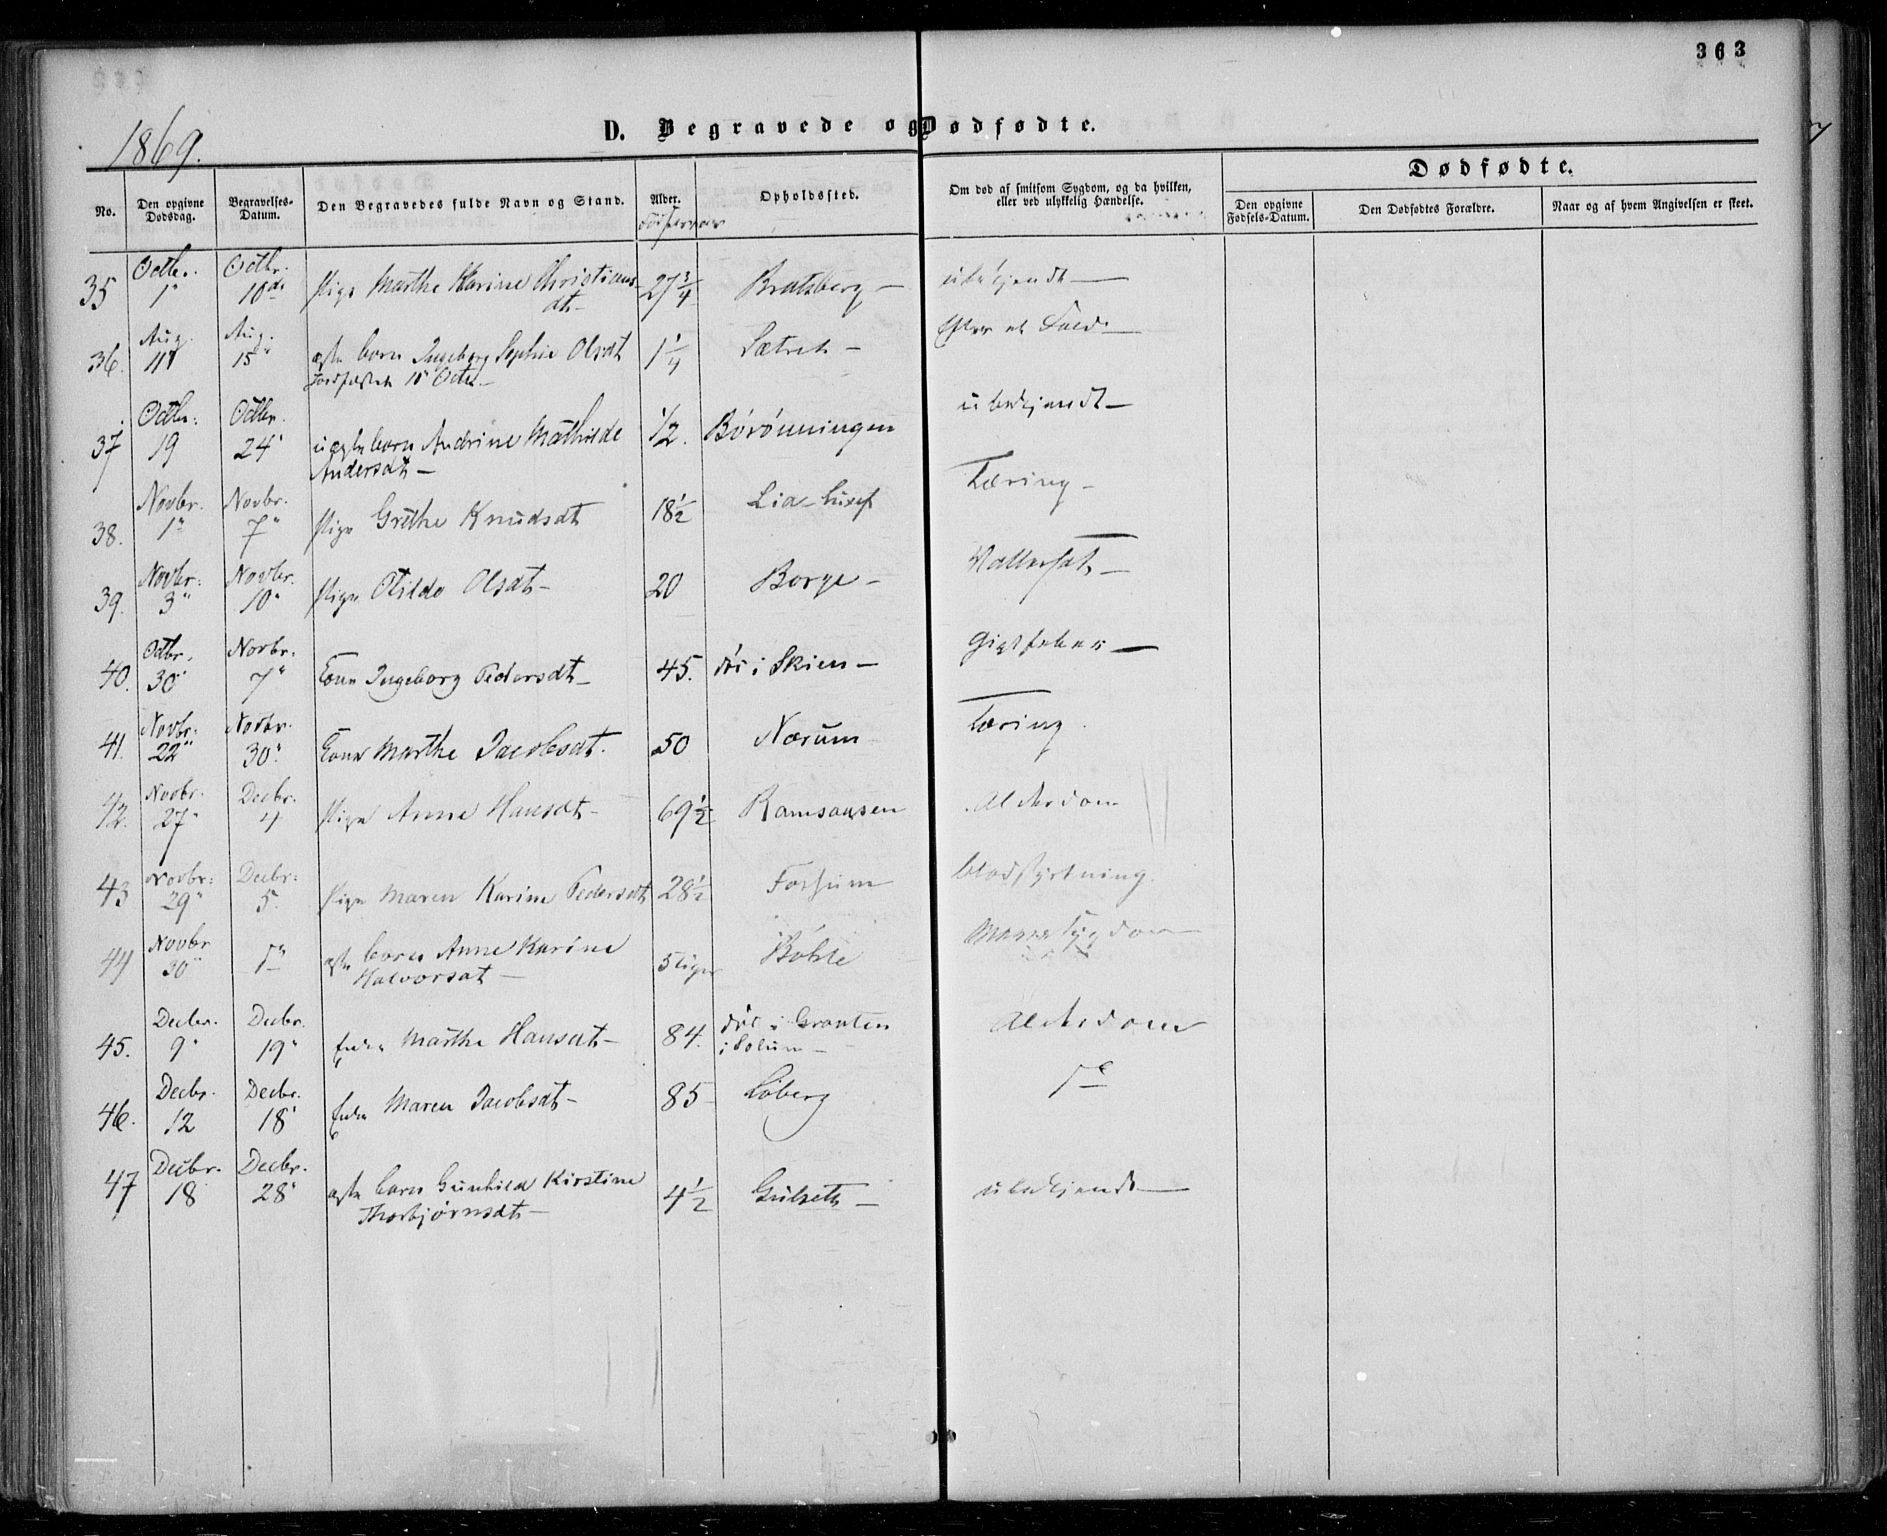 363
1869.
D. Begravede og Dødfødte.
Dødfødte.
No.
Den opgivne Dødsdag.
Begravelses-Datum.
Den Begravedes fulde Navn og Stand.
Alder.
Opholdssted.
Om død af smitsom Sygdom, og da hvilken, eller ved ulykkelig Hændelse.
Den opgivne Fødsels-Datum.
Den Dødfødtes Forældre.
Naar og af hvem Angivelsen er skeet.
35 Octbr. 1" Octbr. 10de Pige Marthe Karine Christians- 27 3/4 Bratsberg – ubekjendt –
dt –
36. Aug. 11" Aug. 15" ægte barn Ingeborg Sophie Olsdt 1 1/4 Sætret – Efter et Fald –
Jordfæstet 10" Octbr –
37 Octbr: 19 Octbr. 24" uægte barn Andrine Mathilde 1/2. Börönningen ubekjendt –
Andersdt –
38. Novbr. 1" Novbr. 7" Pige Grethe Knudsdt 18 1/2 Lia Tæring –
39. Novbr: 3" Novbr. 10" Pige Otilde Olsdt – 20 Borge – Vattersot –
40. Octbr. 30" Novbr. 7" Kone Ingeborg Pedersdt – 45. död i Skien – Gigtfeber –
41. Novbr: 22" Novbr. 30" Kone Marthe Jacobsdt. 50 Nærum Tæring.
42. Novbr. 27" Decbr. 4 Pige Anne Hansdt – 69 1/2 Ramsaasen Alderdom
43 Novbr: 29" Decbr: 5. Pige Maren Karine Pedersdt 28 1/2 Fossum Blodstyrtning.
44 Novbr 30" ægte barn Anne Karine 5 Böhle
Halvorsdt –
45. Decbr. 9" Decbr. 19" Enke Marthe Hansdt – 84. död i Graaten Alderdom
i Solum –
46. Decbr. 12 Decbr. 18" Enke Maren Jacobsdt – 85 – Löberg
47 Decbr. 18 Decbr. 28" ægte barn Gunhild Kirstine 4 1/2 Gulseth – ubekjendt –
Thorbjörnsdt –